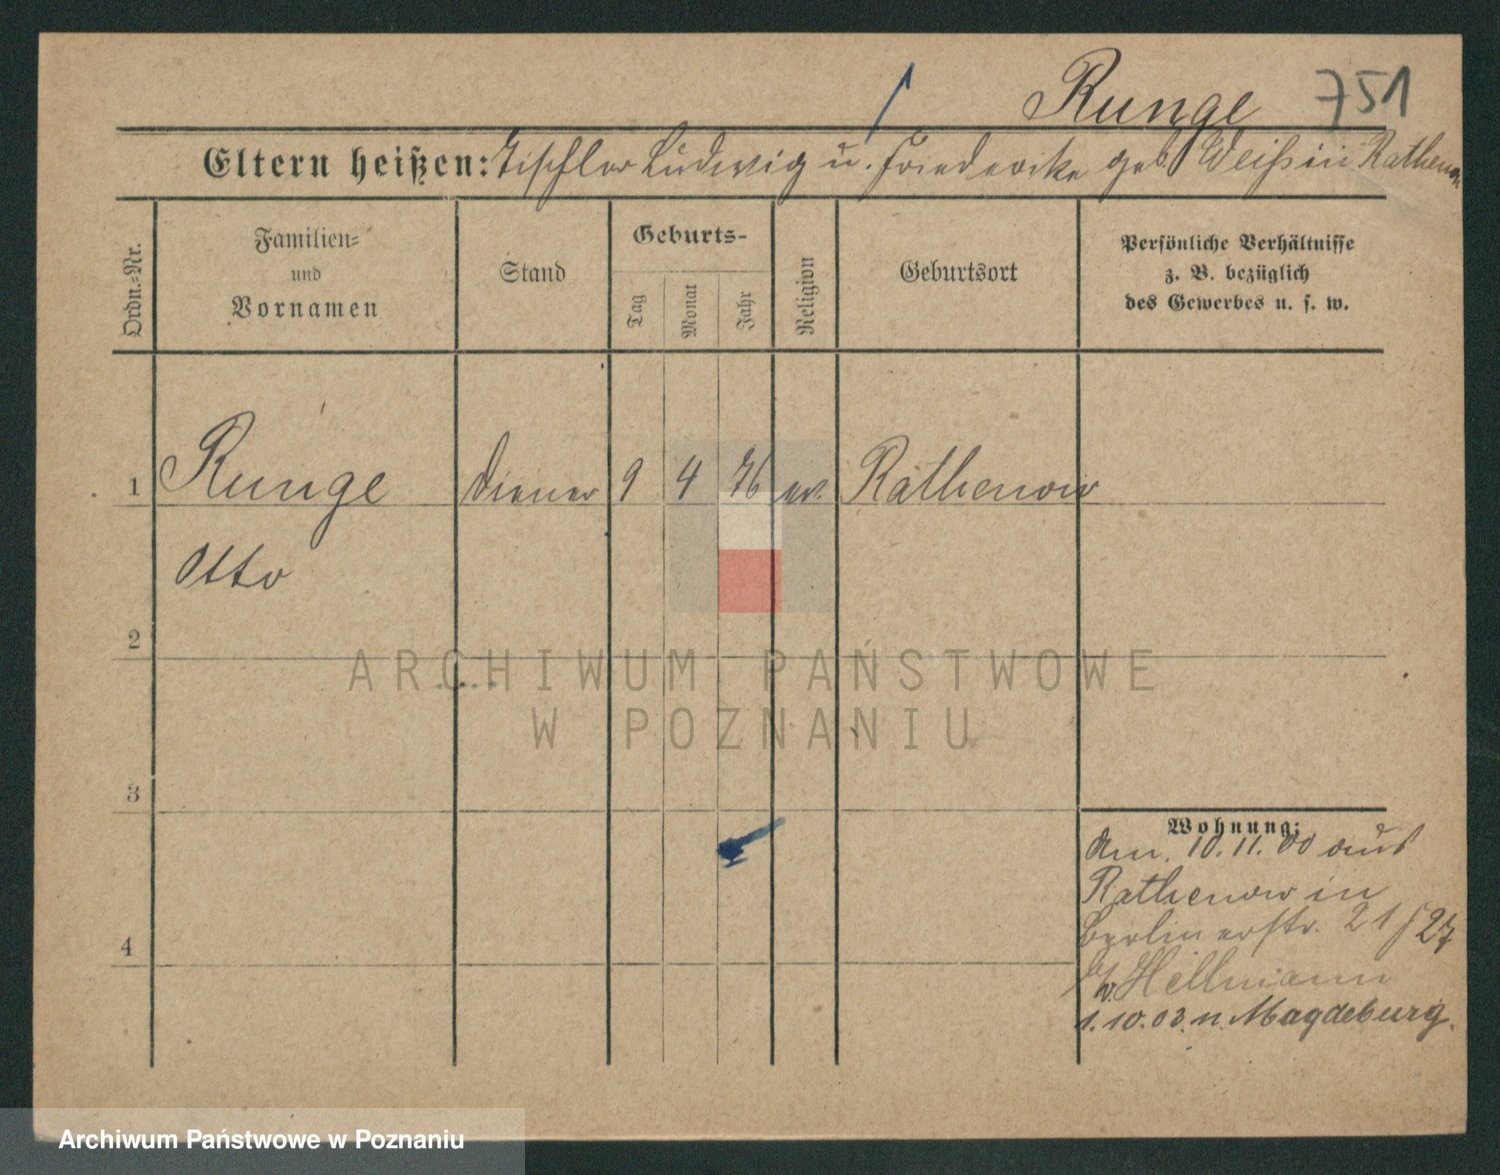 Runge 751
Eltern heißen: Tischler Ludwig u. Friederike geb. Weiß in Rathenow
Ordn.-Nr.
Familien-
und
Vornamen
Stand
Geburts-
Tag
Monat
Jahr
Religion
Geburtsort
Persönliche Verhältnisse
z. B. bezüglich
des Gewerbes u. s. w.
1 Runge Diener 9 4 76 ev. Rathenow
Otto
2
ARCHIWUM PAŃSTWOWE
W POZNANIU
3
Wohnung:
Am. 10.11.00 aus
Rathenow in
Berlinerstr. 21 / 27
b/v. Hellmann
1.10.03. n. Magdeburg.
4
Archiwum Państwowe w Poznaniu